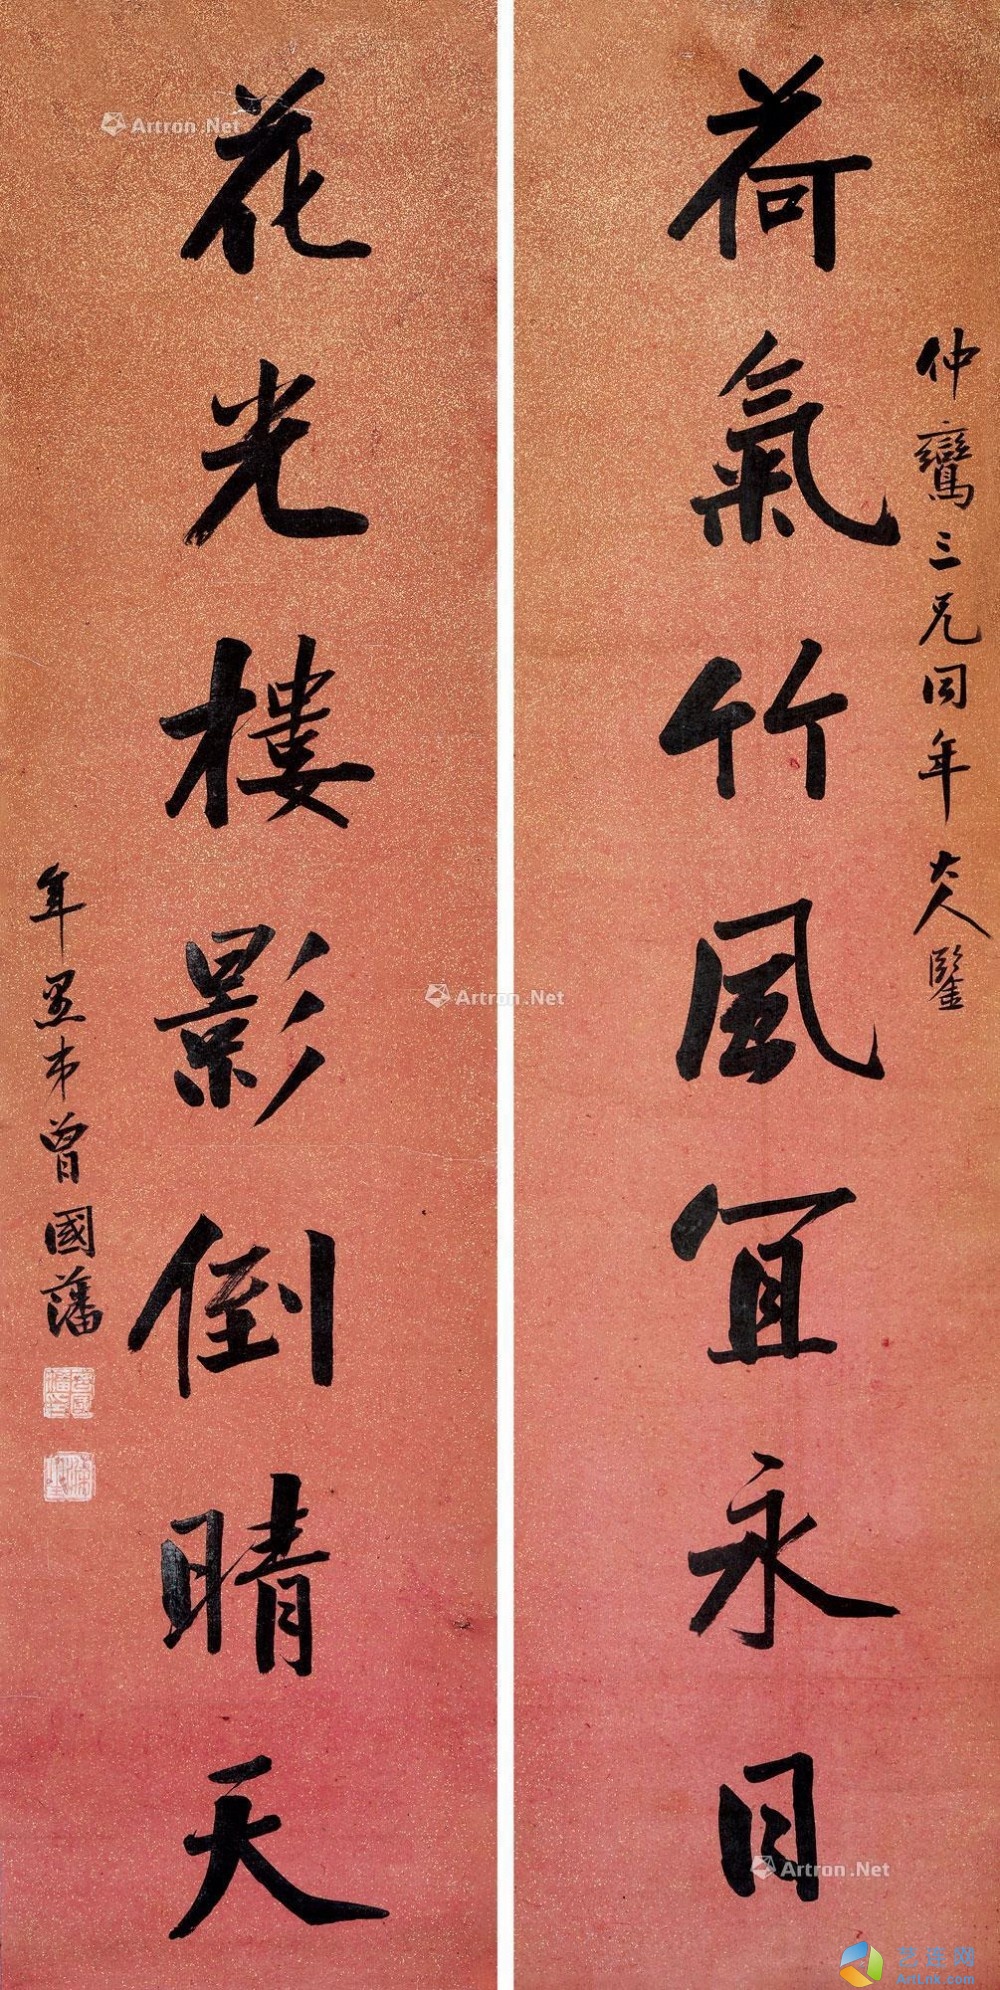 仲鸞三兄同年大人鑒
荷氣竹風宜永日
花光樓影倒晴天
年愚弟曾國藩
曾國藩印
滌生
Artron.Net
Artron.Net
Artron.Net
艺连网
ArtLnk.com